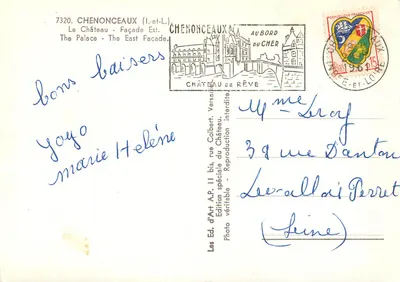 7320. CHENONCEAUX (I.-et-L.)
Le Château - Façade Est.
The Palace - The East Facade.
CHENONCEAUX
AU BORD
DU CHER
CHÂTEAU DE RÊVE
INDRE-ET-LOIRE
bons baisers
Yoyo
marie Helène
Les Ed. d'Art A.P. 11 bis, rue Colbert. Versailles
Edition spéciale du Château.
Photo véritable - Reproduction interdite.
Mme Leroy
39 rue Danton
Levallois Perret
(Seine)